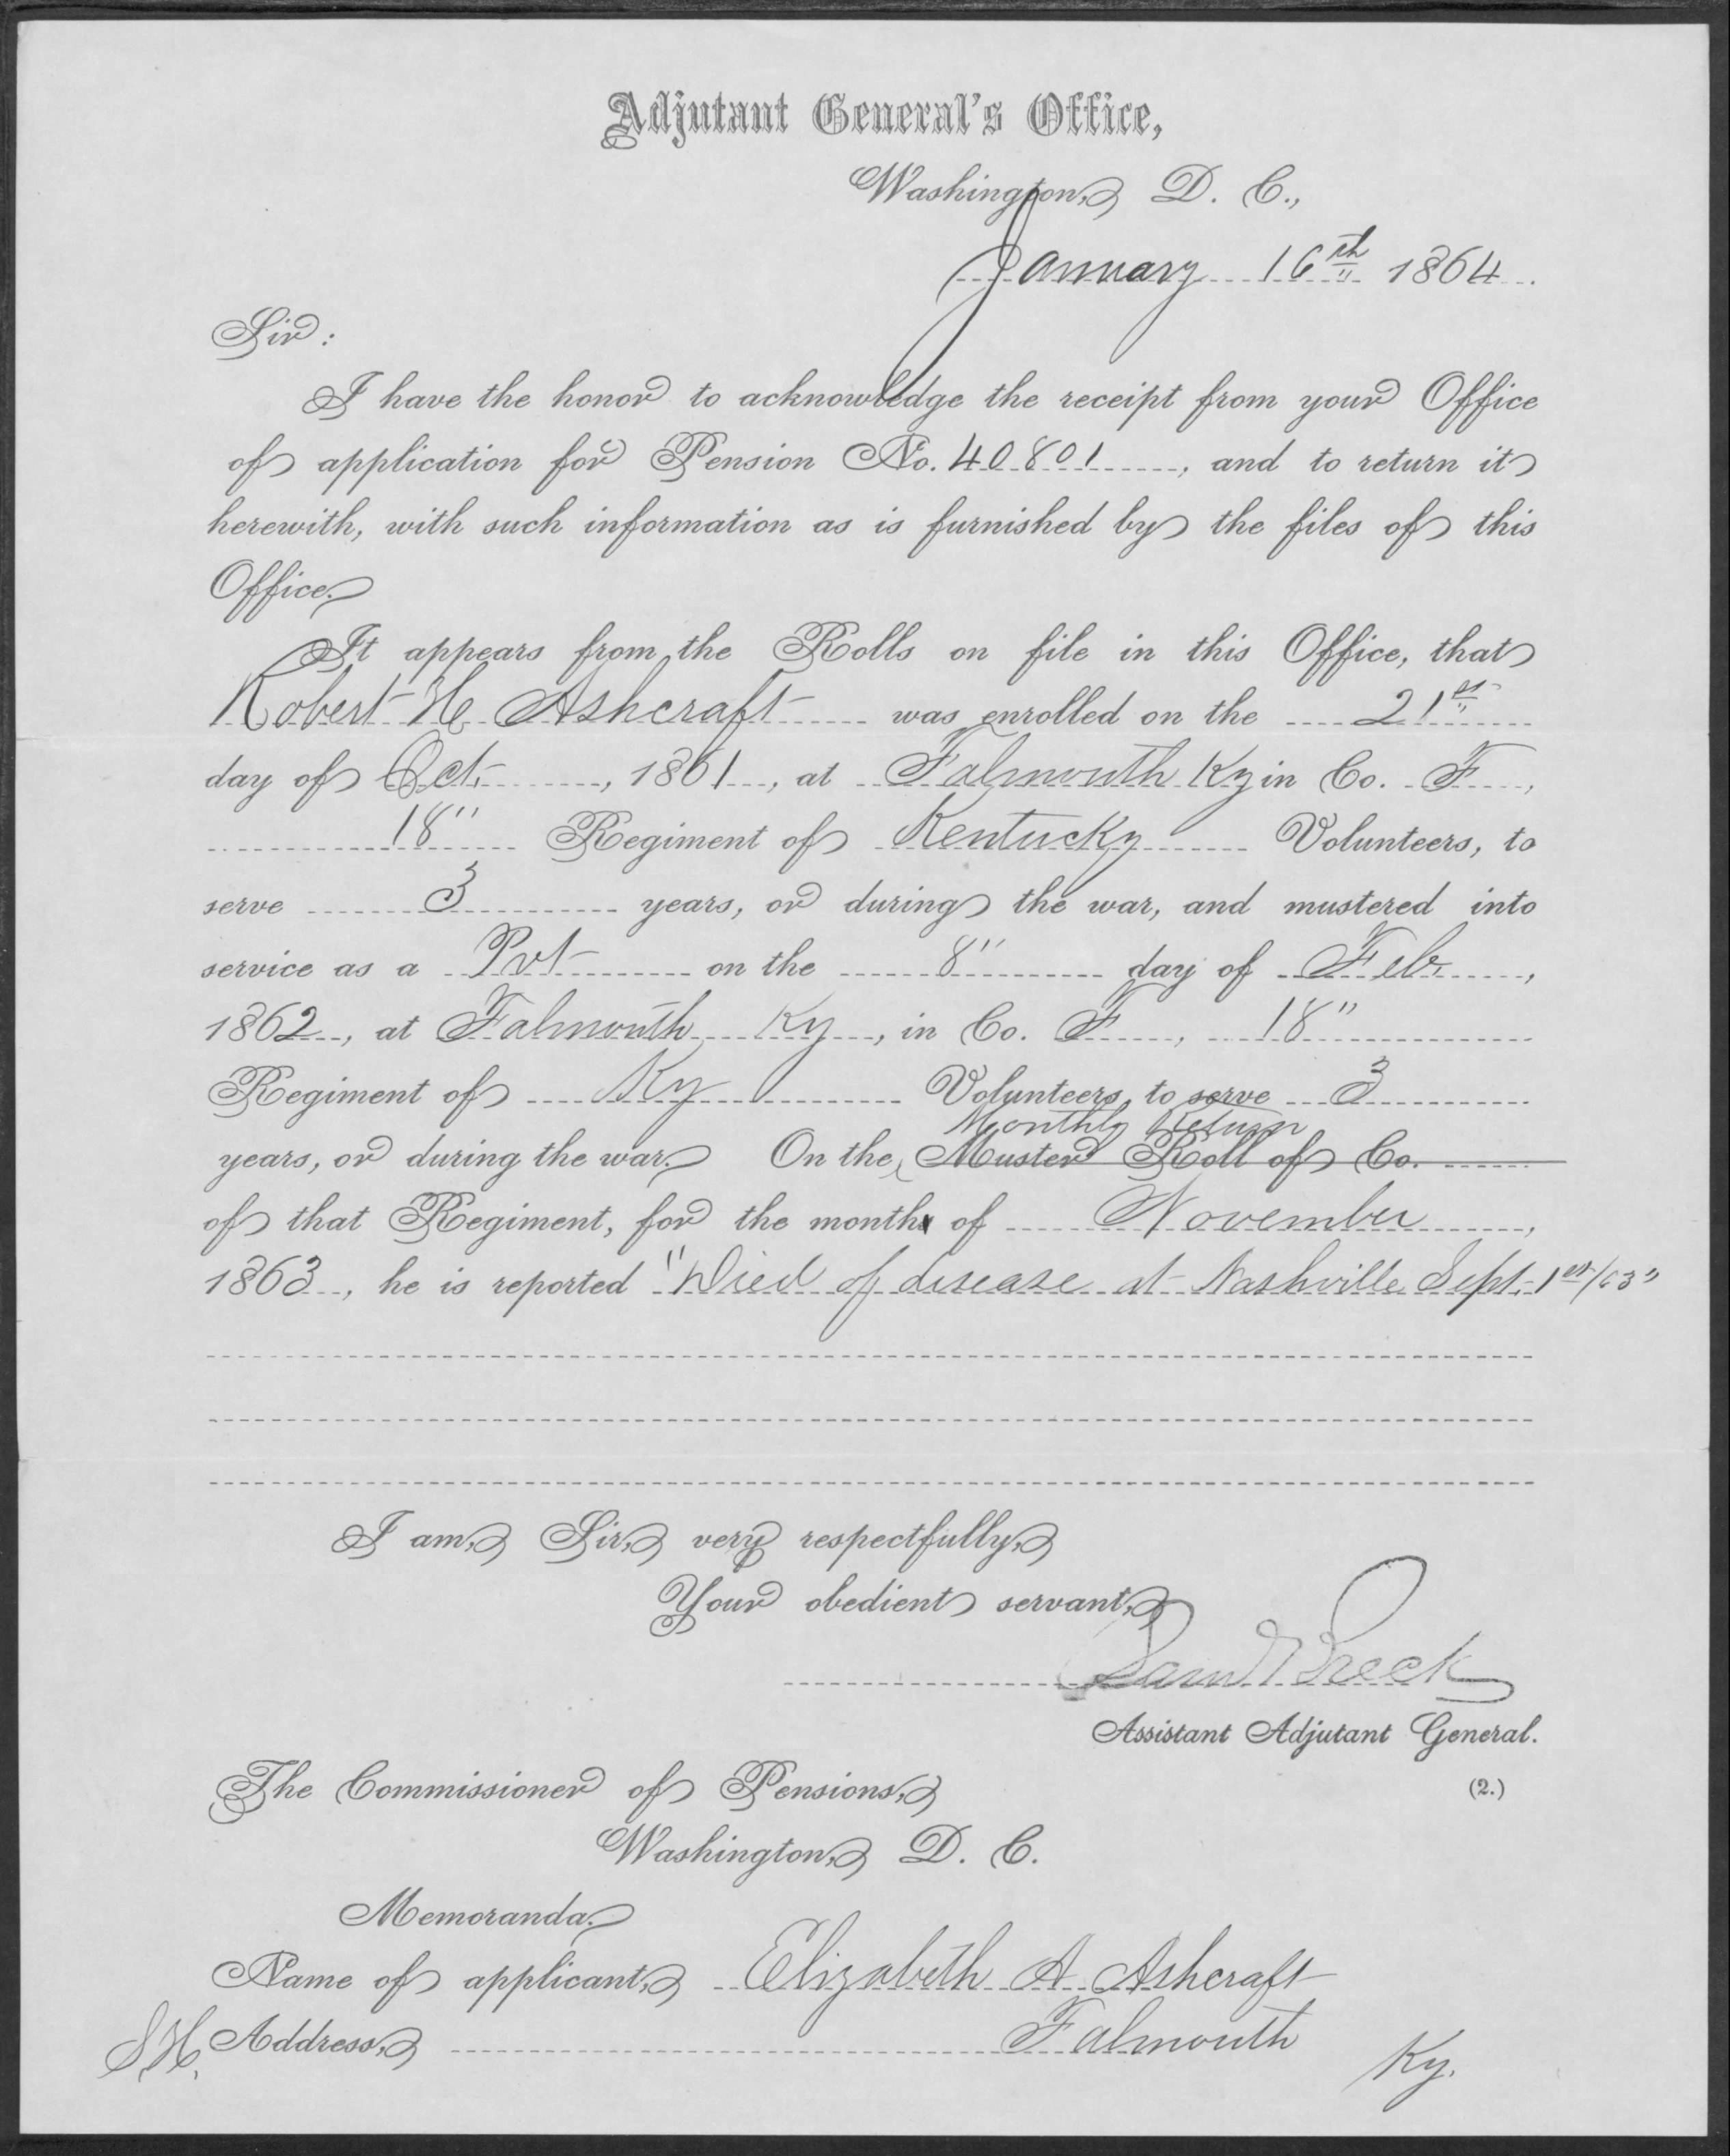 Adjutant General's Office,
Washington, D. C.,
January 16th 1864
Sir:
I have the honor to acknowledge the receipt from your Office
of application for Pension No. 40801, and to return it
herewith, with such information as is furnished by the files of this
Office.
It appears from the Rolls on file in this Office, that
Robert H Ashcraft was enrolled on the 21st
day of Oct., 1861, at Falmouth Ky in Co. F,
18" Regiment of Kentucky Volunteers, to
serve 3 years, or during the war, and mustered into
service as a Pvt on the 8" day of Feb,
1862, at Falmouth Ky, in Co. F, 18"
Regiment of Ky Volunteers, to serve 3
Monthly Return
years, or during the war. On the Muster Roll of Co.
of that Regiment, for the month of November,
1863, he is reported "Died of disease at Nashville Sept. 1st/63"
I am, Sir, very respectfully,
Your obedient servant,
Saml Breck
Assistant Adjutant General.
The Commissioner of Pensions, (2.)
Washington, D. C.
Memoranda.
Name of applicant, Elizabeth A Ashcraft
S.H. Address, Falmouth Ky.